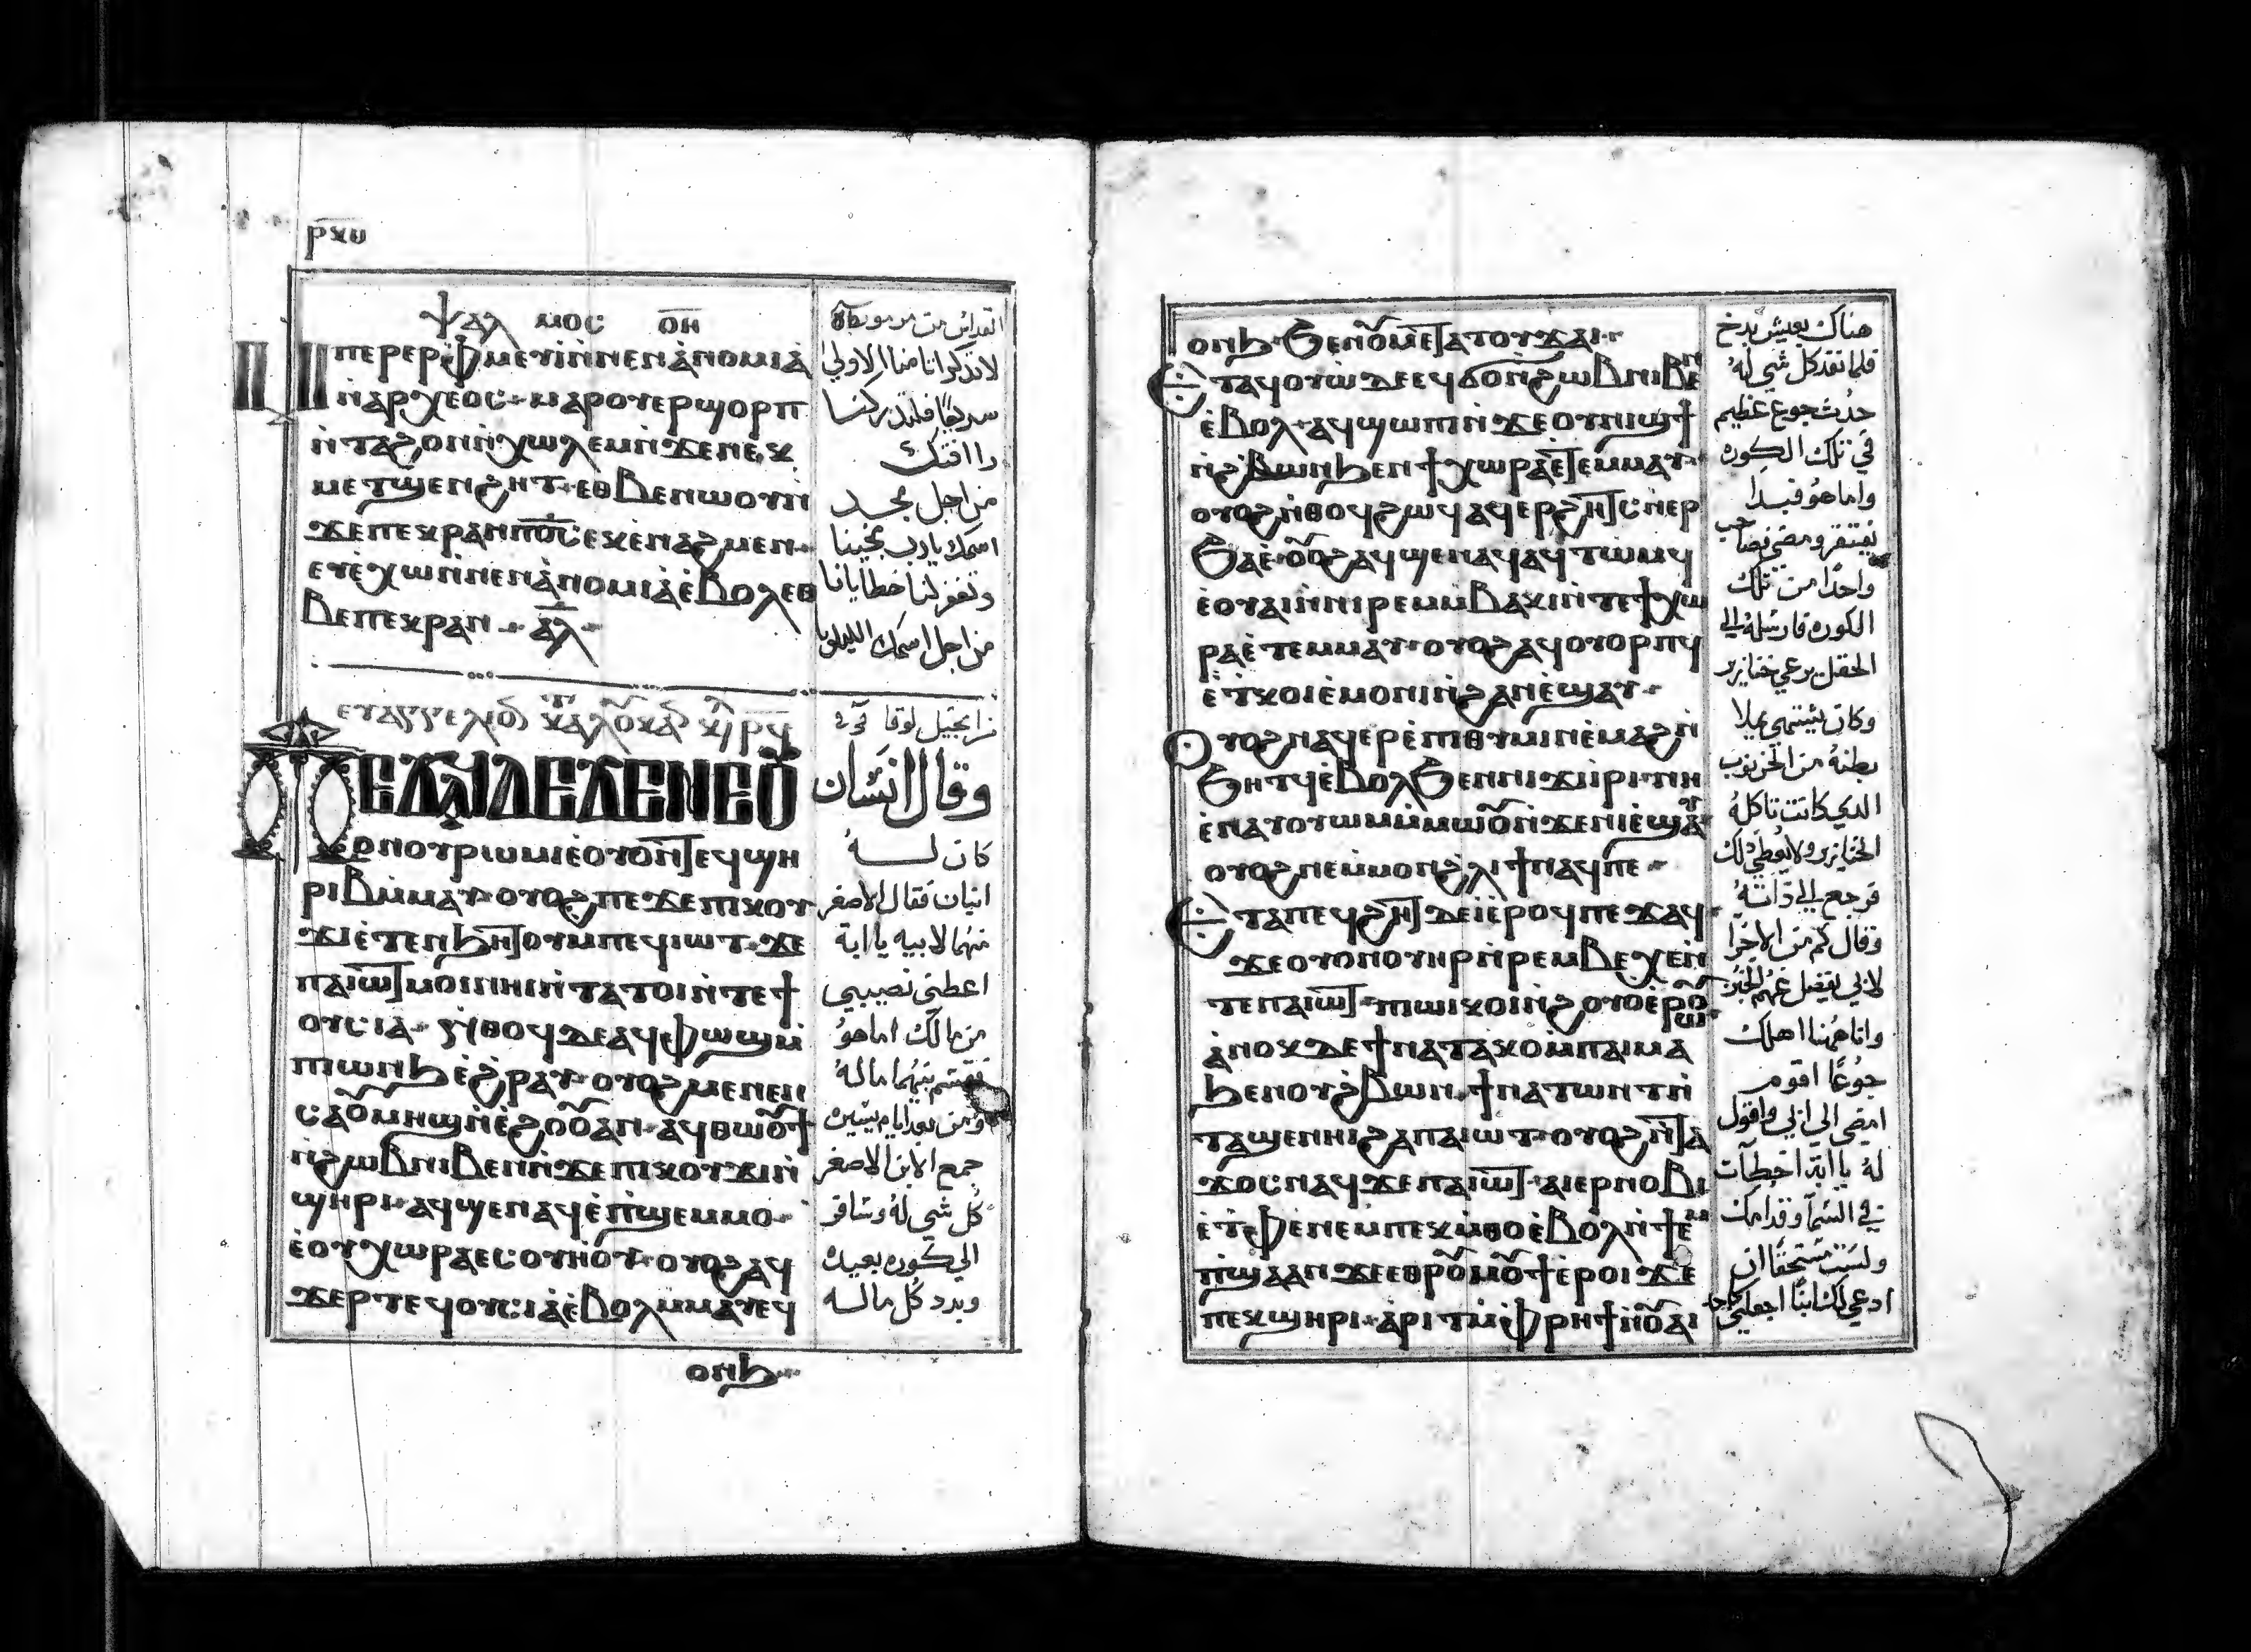 ⲣⲕⲑ
ⲯⲁⲗ ⲙⲟⲥ ⲟⲏ
ⲙⲡⲉⲣⲉⲣⲫⲙⲉⲩⲓ̀ⲛ̀ⲛⲉⲛⲁ̀ⲛⲟⲙⲓⲁ̀
ⲛ̀ⲁⲣⲭⲉⲟⲥ ⲙⲁⲣⲟⲩⲉⲣϣⲟⲣⲡ
ⲛ̀ⲧⲁϩⲟⲛⲛ̀ⲭⲱⲗⲉⲙⲛ̀ϫⲉⲛⲉⲕ
ⲙⲉⲧϣⲉⲛϩⲏⲧ ⲉⲑⲃⲉⲡⲱⲟⲩⲛ̀
ϫⲉⲡⲉⲕⲣⲁⲛⲡⲟ̅ⲥ̅ⲉⲕⲉ̀ⲛⲁϩⲙⲉⲛ
ⲉⲩⲉ̀ⲭⲱⲛ̀ⲛⲉⲛⲁ̀ⲛⲟⲙⲓⲁ̀ⲉ̀ⲃⲟⲗⲉⲑ
ⲃⲉⲡⲉⲕⲣⲁⲛ ⲁ̅ⲗ̅
لا تذكر اثامنا الاولي
سريعًا فلتدركنا
رأافتك
من اجل مجد
اسمك يارب نجينا
وتغفر لنا خطايانا
من اجل اسمك الليلويا
ⲡⲉϫⲁϥⲇⲉϫⲉⲛⲉⲟⲩ
ⲟⲛⲟⲩⲣⲱⲙⲓⲉ̀ⲟⲩⲟⲛⲧⲉϥϣⲏ
ⲣⲓⲃ̅ⲙ̀ⲙⲁⲩ ⲟⲩⲟϩⲡⲉϫⲉⲡⲓⲕⲟⲩ
ϫⲓⲉ̀ⲧⲉⲛϧⲏⲧⲟⲩⲙⲡⲉϥⲓⲱⲧ ϫⲉ
ⲡⲁⲓⲱⲧⲙⲟⲓⲛⲏⲓⲛ̀ⲧⲁⲧⲟⲓⲛ̀ⲧⲉϯ
ⲟⲩⲥⲓⲁ ⲛ̀ⲑⲟϥⲇⲉⲁϥⲫⲱϣⲙ̀
ⲡⲱⲛϧⲉ̀ϩⲣⲁⲩ ⲟⲩⲟϩⲙⲉⲛⲉⲛ
ⲥⲁⲟⲩⲙⲏϣⲛ̀ⲉ̀ϩⲟⲟⲩⲁⲛ ⲁϥⲑⲱⲟⲩϯ
ⲛ̀ϩⲱⲃⲛⲓⲃⲉⲛⲛ̀ϫⲉⲡⲓⲕⲟⲩϫⲓⲛ̀
ϣⲏⲣⲓ ⲁϥϣⲉⲛⲁϥⲉ̀ⲡ̀ϣⲉⲙⲙⲟ
ⲉ̀ⲟⲩⲭⲱⲣⲁⲉⲥⲟⲩⲏⲟⲩ ⲟⲩⲟϩⲁϥ
ϫⲉⲣⲧⲉϥⲟⲩⲥⲓⲁⲉ̀ⲃⲟⲗⲙⲙⲁⲩⲉϥ
وقال انسَان
كان لــــهُ
ابنان فقال الاصغر
منهُما لابيه يا ابة
اعطني نصيبي
من مالك اما هوُ
فقسم بينهُما مالهُ
ومن بعد ايام يسَيره
جمع الابن الاصغر
كُل شي لهُ وسَافر
الي كوره بعيده
وبدد كُل ماله
ⲟⲛϧ
ⲟⲛϧ ϧⲉⲛⲟⲩⲙⲉⲧⲁⲧⲟⲩϫⲁⲓ
ⲉⲧⲁϥⲟⲩⲱ ⲇⲉⲉϥϭⲟⲛϩⲱⲃⲛⲓⲃⲉⲛ
ⲉ̀ⲃⲟⲗ ⲁϥϣⲱⲡⲓⲛ̀ϫⲉⲟⲩⲛⲓϣϯ
ⲛ̀ϩ̀ⲃⲱⲛϧⲉⲛϯⲭⲱⲣⲁⲉⲧⲉⲙⲙⲁⲩ
ⲟⲩⲟϩⲛ̀ⲑⲟϥϩⲱϥⲁϥⲉⲣϩⲏⲧⲥⲛ̀ⲉⲣ
ϧⲁⲉ̀ ⲟⲩⲟϩⲁϥϣⲉⲛⲁϥⲁϥⲧⲱⲙϥ
ⲉ̀ⲟⲩⲁⲓⲛ̀ⲛⲓⲣⲉⲙⲙ̀ⲃⲁⲕⲓⲛ̀ⲧⲉϯⲭⲱ
ⲣⲁⲉ̀ⲧⲉⲙⲙⲁⲩ ⲟⲩⲟϩⲁϥⲟⲩⲟⲣⲡϥ
ⲉ̀ⲧⲕⲟⲓⲉ̀ⲙⲟⲛⲓⲛ̀ϩⲁⲛⲉ̀ϣⲁⲩ
ⲟⲩⲟϩⲛⲁϥⲉⲣⲉ̀ⲡⲓⲑⲩⲙⲓⲛⲉ̀ⲙⲁϩⲛ̀
ϧⲏⲧϥⲉ̀ⲃⲟⲗϧⲉⲛⲛⲓϫⲓⲣⲓ ⲛⲏ
ⲉ̀ⲛⲁⲩⲟⲩⲱⲙⲙ̀ⲙⲱⲟⲩⲛ̀ϫⲉⲛⲓⲉ̀ϣⲁⲩ
ⲟⲩⲟϩⲛⲉⲙⲙⲟⲛϩⲗⲓϯⲛⲁϥⲡⲉ
ⲉⲧⲁⲡⲉϥϩⲏⲧ ⲇⲉⲓ̀ⲉ̀ⲣⲟϥⲡⲉϫⲁϥ
ϫⲉⲟⲩⲟⲛⲟⲩⲏⲣⲛ̀ⲣⲉⲙⲃⲉⲭⲉⲛ̀
ⲧⲉⲡⲁⲓⲱⲧ ⲡⲓⲱⲓⲕⲟⲓⲛ̀ϩⲟⲩⲟⲉ̀ⲣⲱⲟⲩ
ⲁ̀ⲛⲟⲕ ⲇⲉϯⲛⲁⲧⲁⲕⲟⲙ̀ⲡⲁⲓⲙⲁ
ϧⲉⲛⲟⲩϩ̀ⲃⲱⲛ ϯⲛⲁⲧⲱⲛⲧⲛ̀
ⲧⲁϣⲉⲛⲏⲓϩⲁⲡⲁⲓⲱⲧ ⲟⲩⲟϩⲛ̀ⲧⲁ
ϫⲟⲥⲛⲁϥϫⲉⲡⲁⲓⲱⲧ ⲁⲓⲉⲣⲛⲟⲃⲓ
ⲉ̀ⲧ̀ⲫⲉⲛⲉⲙⲡⲉⲕⲙ̀ⲑⲟⲉ̀ⲃⲟⲗⲛ̀ϯⲉⲙ
ⲡ̀ϣⲁⲁⲛϫⲉⲉⲑⲣⲟⲩⲙⲟⲩϯⲉ̀ⲣⲟⲓϫⲉ
ⲡⲉⲕϣⲏⲣⲓ ⲁ̀ⲣⲓⲧⲙ̀ⲫⲣⲏϯⲛ̀ⲟⲩⲁⲓ
هناك بعيش بدخ
فلما نفد كل شي لهُ
حدُث جوع عظيم
في تلك الكوره
واما هوُ فبدا
يفتقر ومضي فصاحب
واحدًا من تلك
الكوره فارسَلهُ الي
الحقل يرعي خنازير
وكان يشتهي يملا
بطنهُ من الخرنوب
الدي كانت تاكلهُ
الخنازير ولا يُعطي دلك
فرجع الي داتهُ
وقال كم من الاجرا
لابي يفضل عنهُم الخبز
وانا هُهنا اهلك
جوُعًا اقوم
امضي الي ابي واقول
لهُ يا ابة اخطأت
في السَمآ وقدامك
ولسَت مسَتحقًا ان
ادعي لك ابنًا اجعلني كاحد